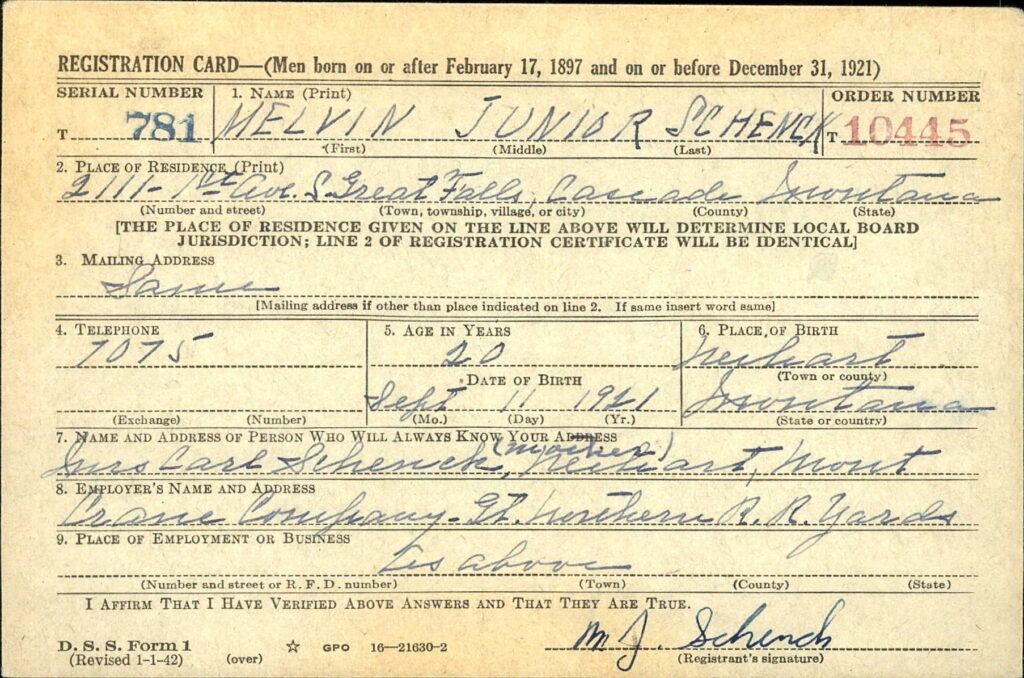 REGISTRATION CARD—(Men born on or after February 17, 1897 and on or before December 31, 1921)
SERIAL NUMBER 1. NAME (Print) ORDER NUMBER
T 781 MELVIN JUNIOR SCHENCK T 10445
(First) (Middle) (Last)
2. PLACE OF RESIDENCE (Print)
2111- 1st Ave. S Great Falls, Cascade Montana
(Number and street) (Town, township, village, or city) (County) (State)
[THE PLACE OF RESIDENCE GIVEN ON THE LINE ABOVE WILL DETERMINE LOCAL BOARD
JURISDICTION; LINE 2 OF REGISTRATION CERTIFICATE WILL BE IDENTICAL]
3. MAILING ADDRESS
Same
[Mailing address if other than place indicated on line 2. If same insert word same]
4. TELEPHONE 5. AGE IN YEARS 6. PLACE OF BIRTH
7075 20 Neihart
DATE OF BIRTH (Town or county)
Sept 11 1921 Montana
(Exchange) (Number) (Mo.) (Day) (Yr.) (State or country)
7. NAME AND ADDRESS OF PERSON WHO WILL ALWAYS KNOW YOUR ADDRESS
Mrs Carl Schenck, (mother) Neihart, Mont
8. EMPLOYER'S NAME AND ADDRESS
Crane Company - Gt. Northern R. R. Yards
9. PLACE OF EMPLOYMENT OR BUSINESS
as above
(Number and street or R. F. D. number) (Town) (County) (State)
I AFFIRM THAT I HAVE VERIFIED ABOVE ANSWERS AND THAT THEY ARE TRUE.
M J. Schenck
D. S. S. Form 1
(Revised 1-1-42) (over) ☆ GPO 16—21630-2 (Registrant's signature)